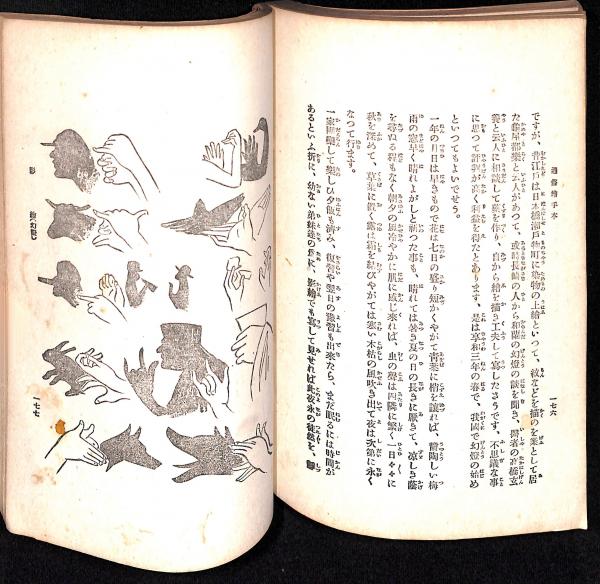 通俗繪手本
一七六
ですが、昔江戸は日本橋瀬戸物町に染物の上繪といつて、紋などを描のを業として居
た龜屋都樂と云人があつて、或時長崎の人から和蘭の幻燈の談を聞き、醫者の高橋玄
養と云人に相談して藥を作り、自から繪を描き工夫して寫したさうです。不思議な事
に思つて評判が高く利益を得たとあります、是は享和三年の春で、我國で幻燈の始め
といつてもよいでせう。
一年の月日は早きもので花は七日の盛り短かくやがて青葉に梢を讓れば、鬱陶しい梅
雨の窓早く晴れよがしと祈つた事も、晴れては暑き夏の日の長きに厭きて、凉しき蔭
を尋ぬる程もなく朝夕の風冷やかに肌に感じ來れば、虫の聲は四隣に繁く一日々々に
秋を深めて、草葉に置く露は霜を結びやがては寒い木枯の風吹き出て夜は次第に永く
なつて行ます。
一家團欒して樂しい夕飯も濟み、復習や翌日の豫習も出來たら、まだ眠るには時間が
あるといふ折に、幼ない弟妹達の爲に、影繪でも寫して見せれば此夜永の徒然を、
影
一七七